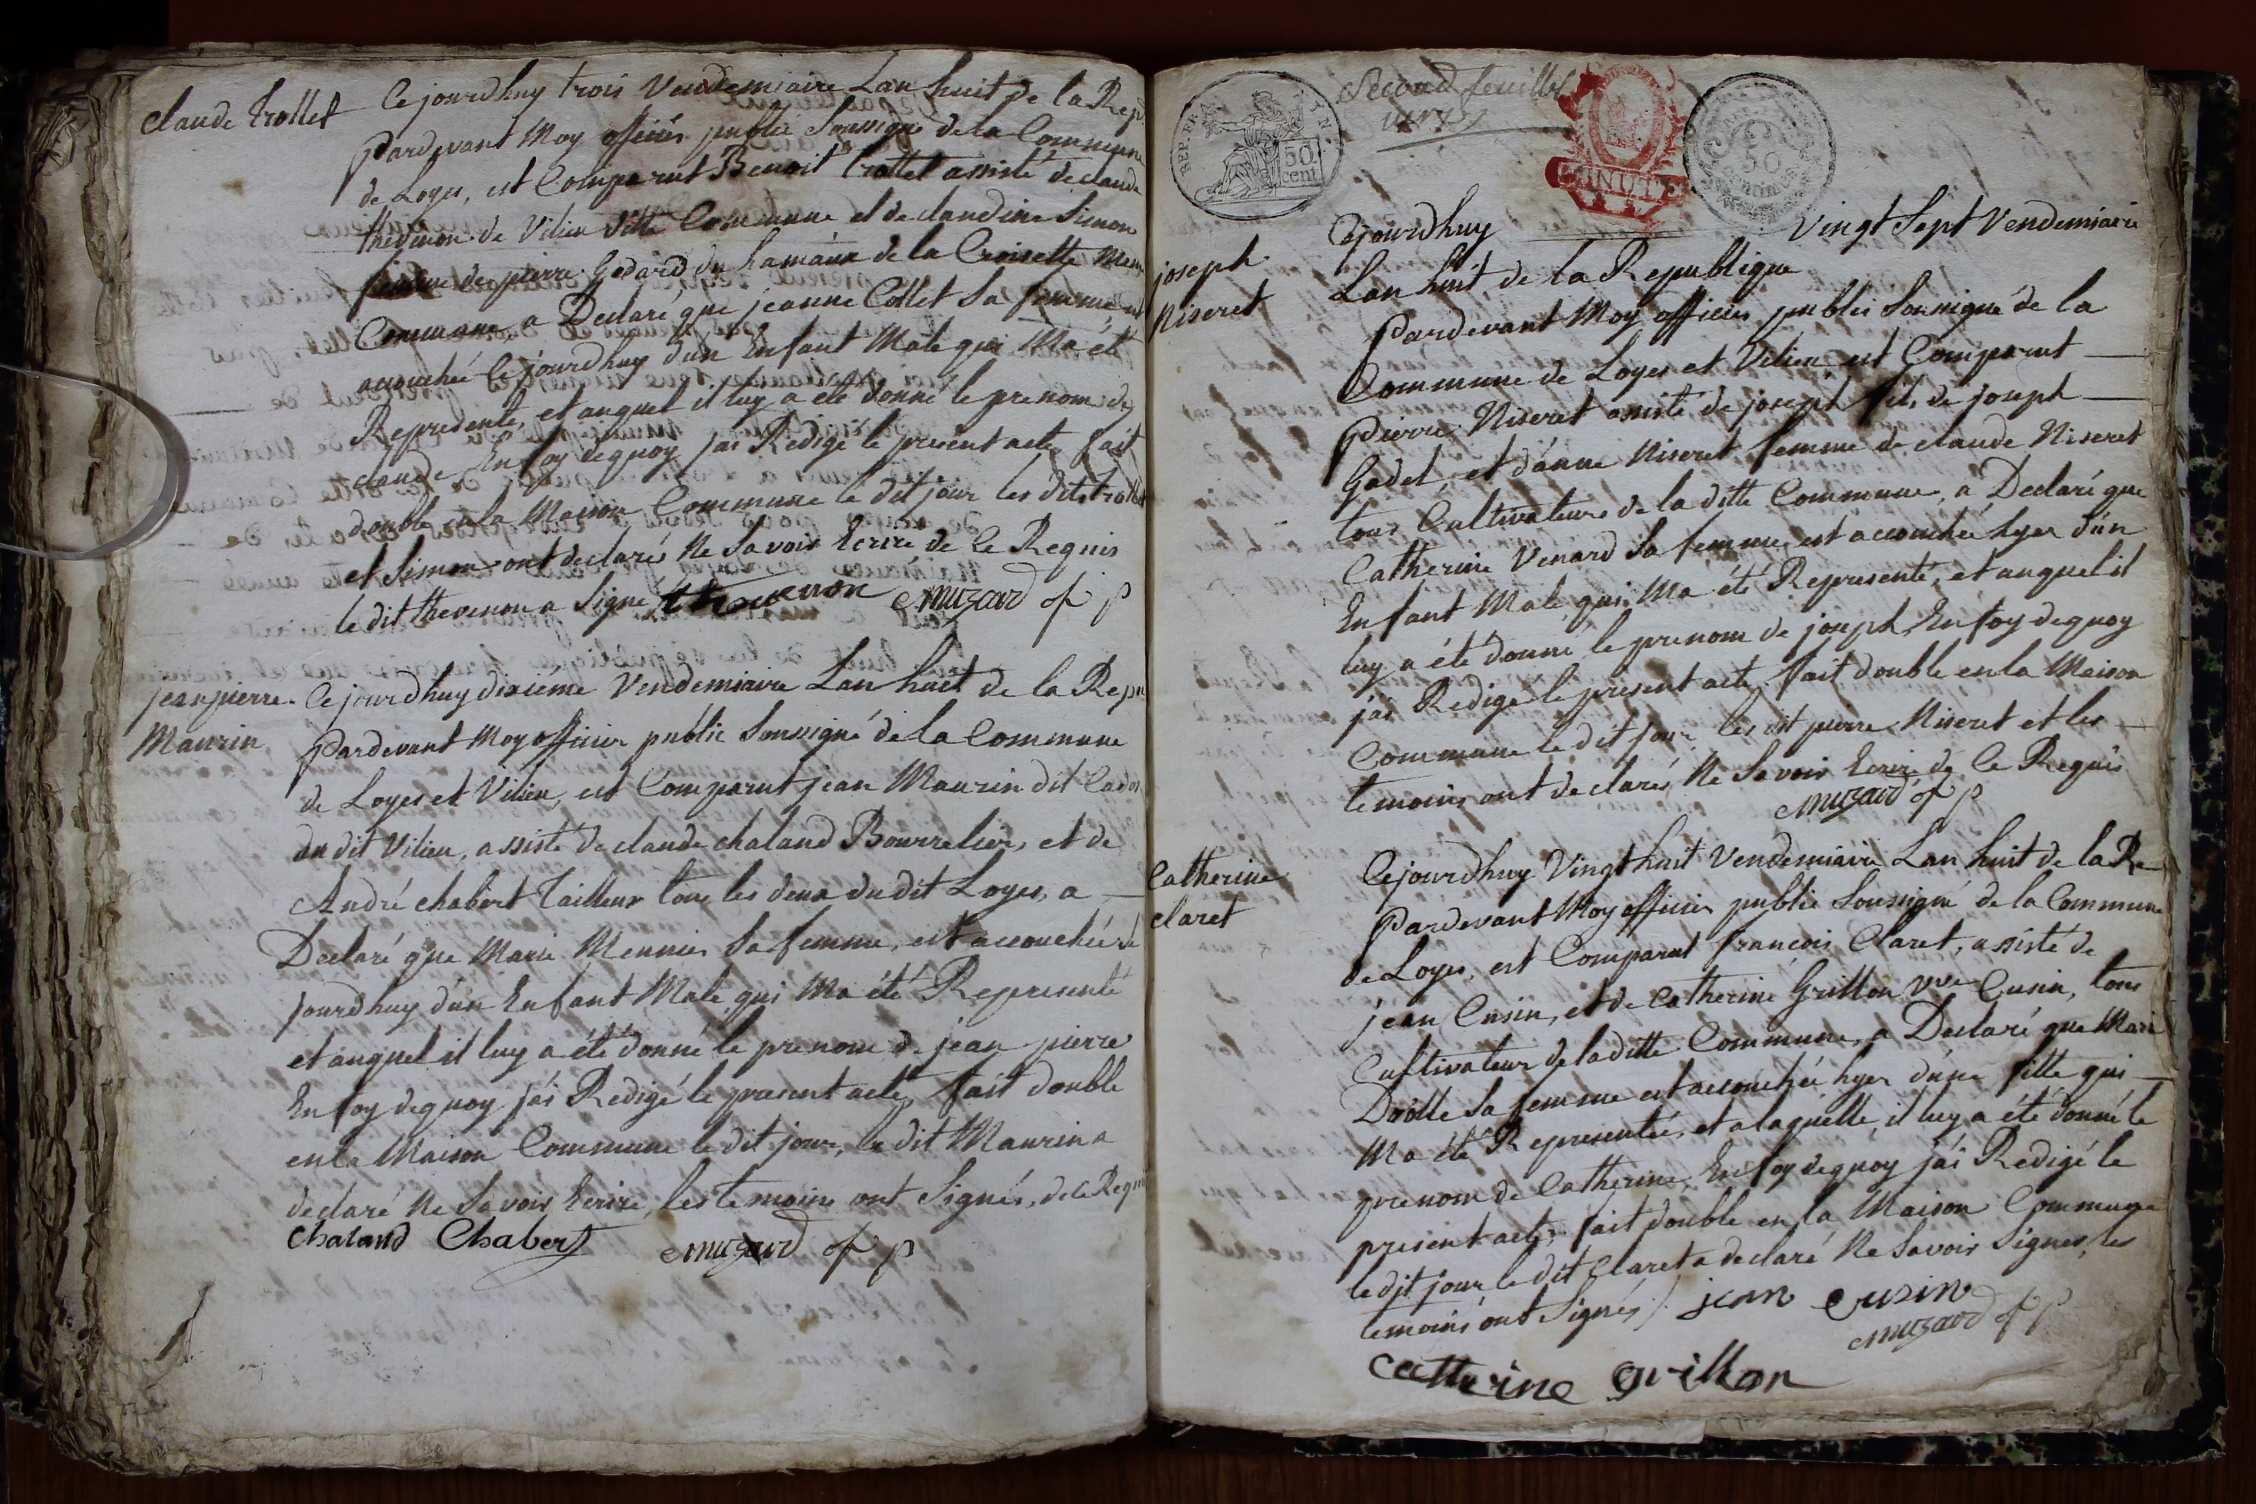 claude trollet
Cejourdhuy trois Vendemiaire Lan huit de la Rep
Pardevant Moy officier public Soussigné de la Commune
de Loyes, est Comparut Benoit trollet assisté de claude
thevenon de Vilieu ditte Commune et de claudine Simon
femme de pierre Godard du hamaux de la Croisette Meme
Commune a Declaré que jeanne Collet Sa femme est
accouchée Cejourdhuy dun Enfant Male qui Ma été
Representé, et auquel il luy a été donné le prenom de
claude En foy de quoy jai Redigé le present acte fait
double en la Maison Commune le dit jour les dits trollet
et Simon ont declarés Ne Savoir Ecrire de Ce Requis
le dit thevenon a Signé thevenon Muzard of p
jean pierre
Maurin
Cejourdhuy dixiéme Vendemiaire Lan huit de la Repu
Pardevant Moy officier public Soussigné de la Commune
de Loyes et Vilieu, est Comparut jean Maurin dit
du dit Vilieu, assisté de claude chaland Bourrelier, et de
André chabert Tailleur tous les deux du dit Loyes, a
Declaré que Marie Mennier Sa femme, est accouchée
jourdhuy dun Enfant Male, qui Ma été Representé
et auquel il luy a été donné le prenom de jean pierre
En foy de quoy jai Redigé le present acte, fait double
en la Maison Commune le dit jour, le dit Maurin a
declaré Ne Savoir Ecrire, les temoins ont Signés, de ce Requi
Chaland Chabert Muzard of p
REP. FR.
50
cent
Second feuillet
50
centimes
joseph
Niseret
Cejourdhuy Vingt Sept Vendemiaire
Lan huit de la Republique
Pardevant Moy officier public Soussigné de la
Commune de Loyes et Vilieu, est Comparut
Pierre Niseret assisté de joseph fils de joseph
Godet, et d'anne Niseret femme de claude Niseret
tous Cultivateurs de la ditte Commune, a Declaré que
Catherine Venard Sa femme est accouchée hyer d'un
Enfant Male qui Ma été Representé, et auquel il
luy a été donné le prenom de joseph, En foy de quoy
jai Redigé le present acte, fait double en la Maison
Commune le dit jour, les dit pierre Niseret et les
temoins ont declarés Ne Savoir Ecrire de Ce Requis
Muzard of p
Catherine
claret
Cejourdhuy Vingt huit Vendemiaire Lan huit de la Re
Pardevant Moy officier public Soussigné de la Commune
de Loyes, est Comparut françois Claret, assisté de
jean Cusin, et de Catherine Grillon Vve Cusin, tous
Cultivateurs de la ditte Commune, a Declaré que Marie
Drolle Sa femme est accouchée hyer d'une fille qui
Ma été Representée, et a laquelle, il luy a été donné le
prenom de Catherine, En foy de quoy jai Redigé le
present acte, fait double en la Maison Commune
le dit jour le dit Claret a declaré Ne Savoir Signer, les
temoins ont Signés /. jean cusin
Muzard of p
Catherine grillon